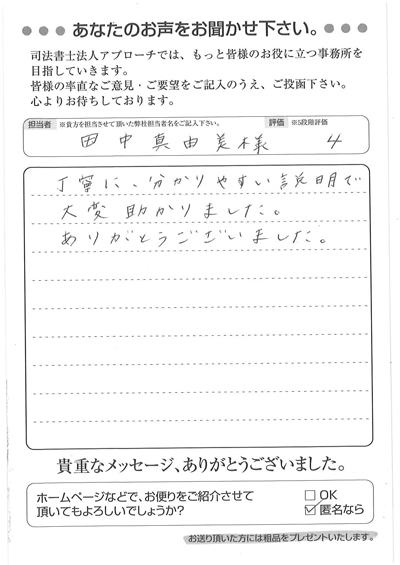 ●●● あなたのお声をお聞かせ下さい。 ●●●
司法書士法人アプローチでは、もっと皆様のお役に立つ事務所を
目指していきます。
皆様の率直なご意見・ご要望をご記入のうえ、ご投函下さい。
心よりお待ちしております。
担当者 ※貴方を担当させて頂いた弊社担当者名をご記入下さい。 評価 ※5段階評価
田中真由美様 4
丁寧に、分かりやすい説明で
大変助かりました。
ありがとうございました。
貴重なメッセージ、ありがとうございました。
ホームページなどで、お便りをご紹介させて
頂いてもよろしいでしょうか?
□ OK
☑ 匿名なら
お送り頂いた方には粗品をプレゼントいたします。